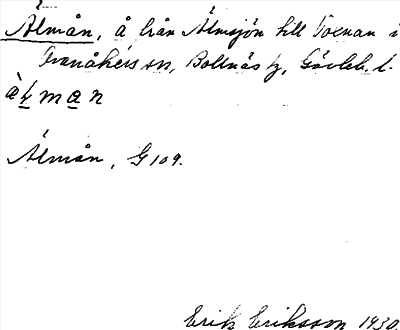 Älmån, å från Älmsjön till Voxnan i
Svanåkers sn, Bollnäs tg, Gävleb. l.
àḷman
Älmån, G 109.
Erik Eriksson 1930.